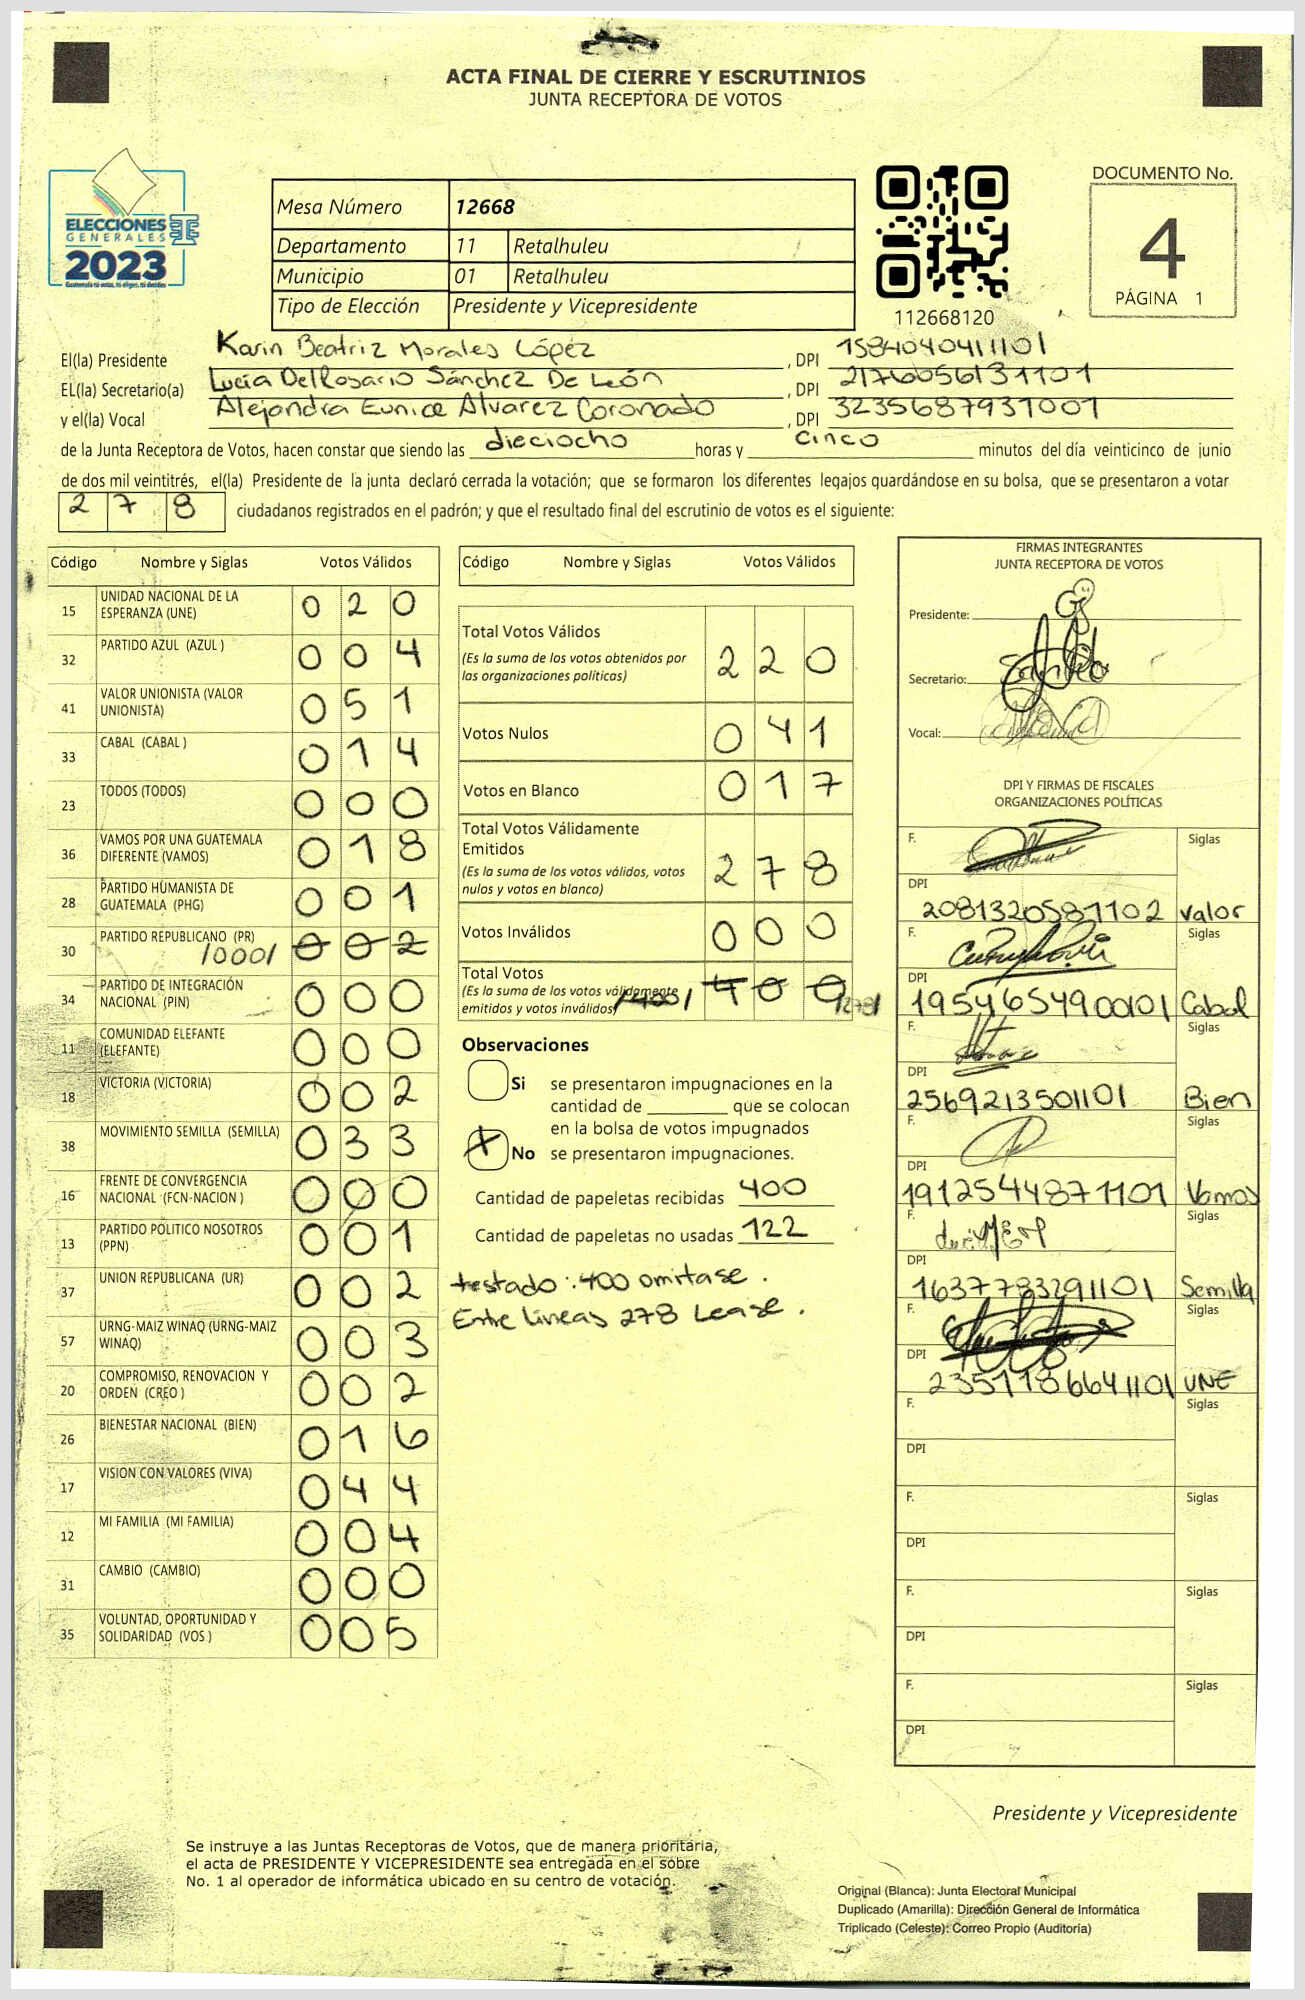 ACTA FINAL DE CIERRE Y ESCRUTINIOS
JUNTA RECEPTORA DE VOTOS
ELECCIONES
GENERALES
2023
Mesa Número 12668
Departamento 11 Retalhuleu
Municipio 01 Retalhuleu
Tipo de Elección Presidente y Vicepresidente
112668120
DOCUMENTO No.
4
PÁGINA 1
El(la) Presidente Karin Beatriz Morales López , DPI 1584040411101
EL(la) Secretario(a) Lucía DelRosario Sánchez De León , DPI 2176056131101
y el(la) Vocal Alejandra Eunice Alvarez Coronado , DPI 3235687931001
de la Junta Receptora de Votos, hacen constar que siendo las dieciocho horas y cinco minutos del día veinticinco de junio
de dos mil veintitrés, el(la) Presidente de la junta declaró cerrada la votación; que se formaron los diferentes legajos guardándose en su bolsa, que se presentaron a votar
278 ciudadanos registrados en el padrón; y que el resultado final del escrutinio de votos es el siguiente:
Código Nombre y Siglas Votos Válidos
15 UNIDAD NACIONAL DE LA ESPERANZA (UNE) 020
32 PARTIDO AZUL (AZUL ) 004
41 VALOR UNIONISTA (VALOR UNIONISTA) 051
33 CABAL (CABAL ) 014
23 TODOS (TODOS) 000
36 VAMOS POR UNA GUATEMALA DIFERENTE (VAMOS) 018
28 PARTIDO HUMANISTA DE GUATEMALA (PHG) 001
30 PARTIDO REPUBLICANO (PR) /000/ 002
34 PARTIDO DE INTEGRACIÓN NACIONAL (PIN) 000
11 COMUNIDAD ELEFANTE (ELEFANTE) 000
18 VICTORIA (VICTORIA) 002
38 MOVIMIENTO SEMILLA (SEMILLA) 033
16 FRENTE DE CONVERGENCIA NACIONAL (FCN-NACION ) 000
13 PARTIDO POLITICO NOSOTROS (PPN) 001
37 UNION REPUBLICANA (UR) 002
57 URNG-MAIZ WINAQ (URNG-MAIZ WINAQ) 003
20 COMPROMISO, RENOVACION Y ORDEN (CREO ) 002
26 BIENESTAR NACIONAL (BIEN) 016
17 VISION CON VALORES (VIVA) 044
12 MI FAMILIA (MI FAMILIA) 004
31 CAMBIO (CAMBIO) 000
35 VOLUNTAD, OPORTUNIDAD Y SOLIDARIDAD (VOS ) 005
Código Nombre y Siglas Votos Válidos
Total Votos Válidos 220
(Es la suma de los votos obtenidos por
las organizaciones políticas)
Votos Nulos 041
Votos en Blanco 017
Total Votos Válidamente
Emitidos 278
(Es la suma de los votos válidos, votos
nulos y votos en blanco)
Votos Inválidos 000
Total Votos 400
(Es la suma de los votos válidamente
emitidos y votos inválidos) /400/ /278/
Observaciones
Si se presentaron impugnaciones en la
cantidad de ________ que se colocan
en la bolsa de votos impugnados
X No se presentaron impugnaciones.
Cantidad de papeletas recibidas 400
Cantidad de papeletas no usadas 122
testado: 400 omitase.
Entre lineas 278 Lease.
FIRMAS INTEGRANTES
JUNTA RECEPTORA DE VOTOS
Presidente:
Secretario:
Vocal:
DPI Y FIRMAS DE FISCALES
ORGANIZACIONES POLÍTICAS
F. Siglas
DPI 2081320581102 valor
F. Siglas
DPI 1954654900101 Cabal
F. Siglas
DPI 2569213501101 Bien
F. Siglas
DPI 1912544871101 Vamos
F. Siglas
DPI 1637783291101 Semilla
F. Siglas
DPI 2351186641101 UNE
F. Siglas
DPI
F. Siglas
DPI
F. Siglas
DPI
F. Siglas
DPI
Presidente y Vicepresidente
Se instruye a las Juntas Receptoras de Votos, que de manera prioritaria,
el acta de PRESIDENTE Y VICEPRESIDENTE sea entregada en el sobre
No. 1 al operador de informática ubicado en su centro de votación.
Original (Blanca): Junta Electoral Municipal
Duplicado (Amarilla): Dirección General de Informática
Triplicado (Celeste): Correo Propio (Auditoría)